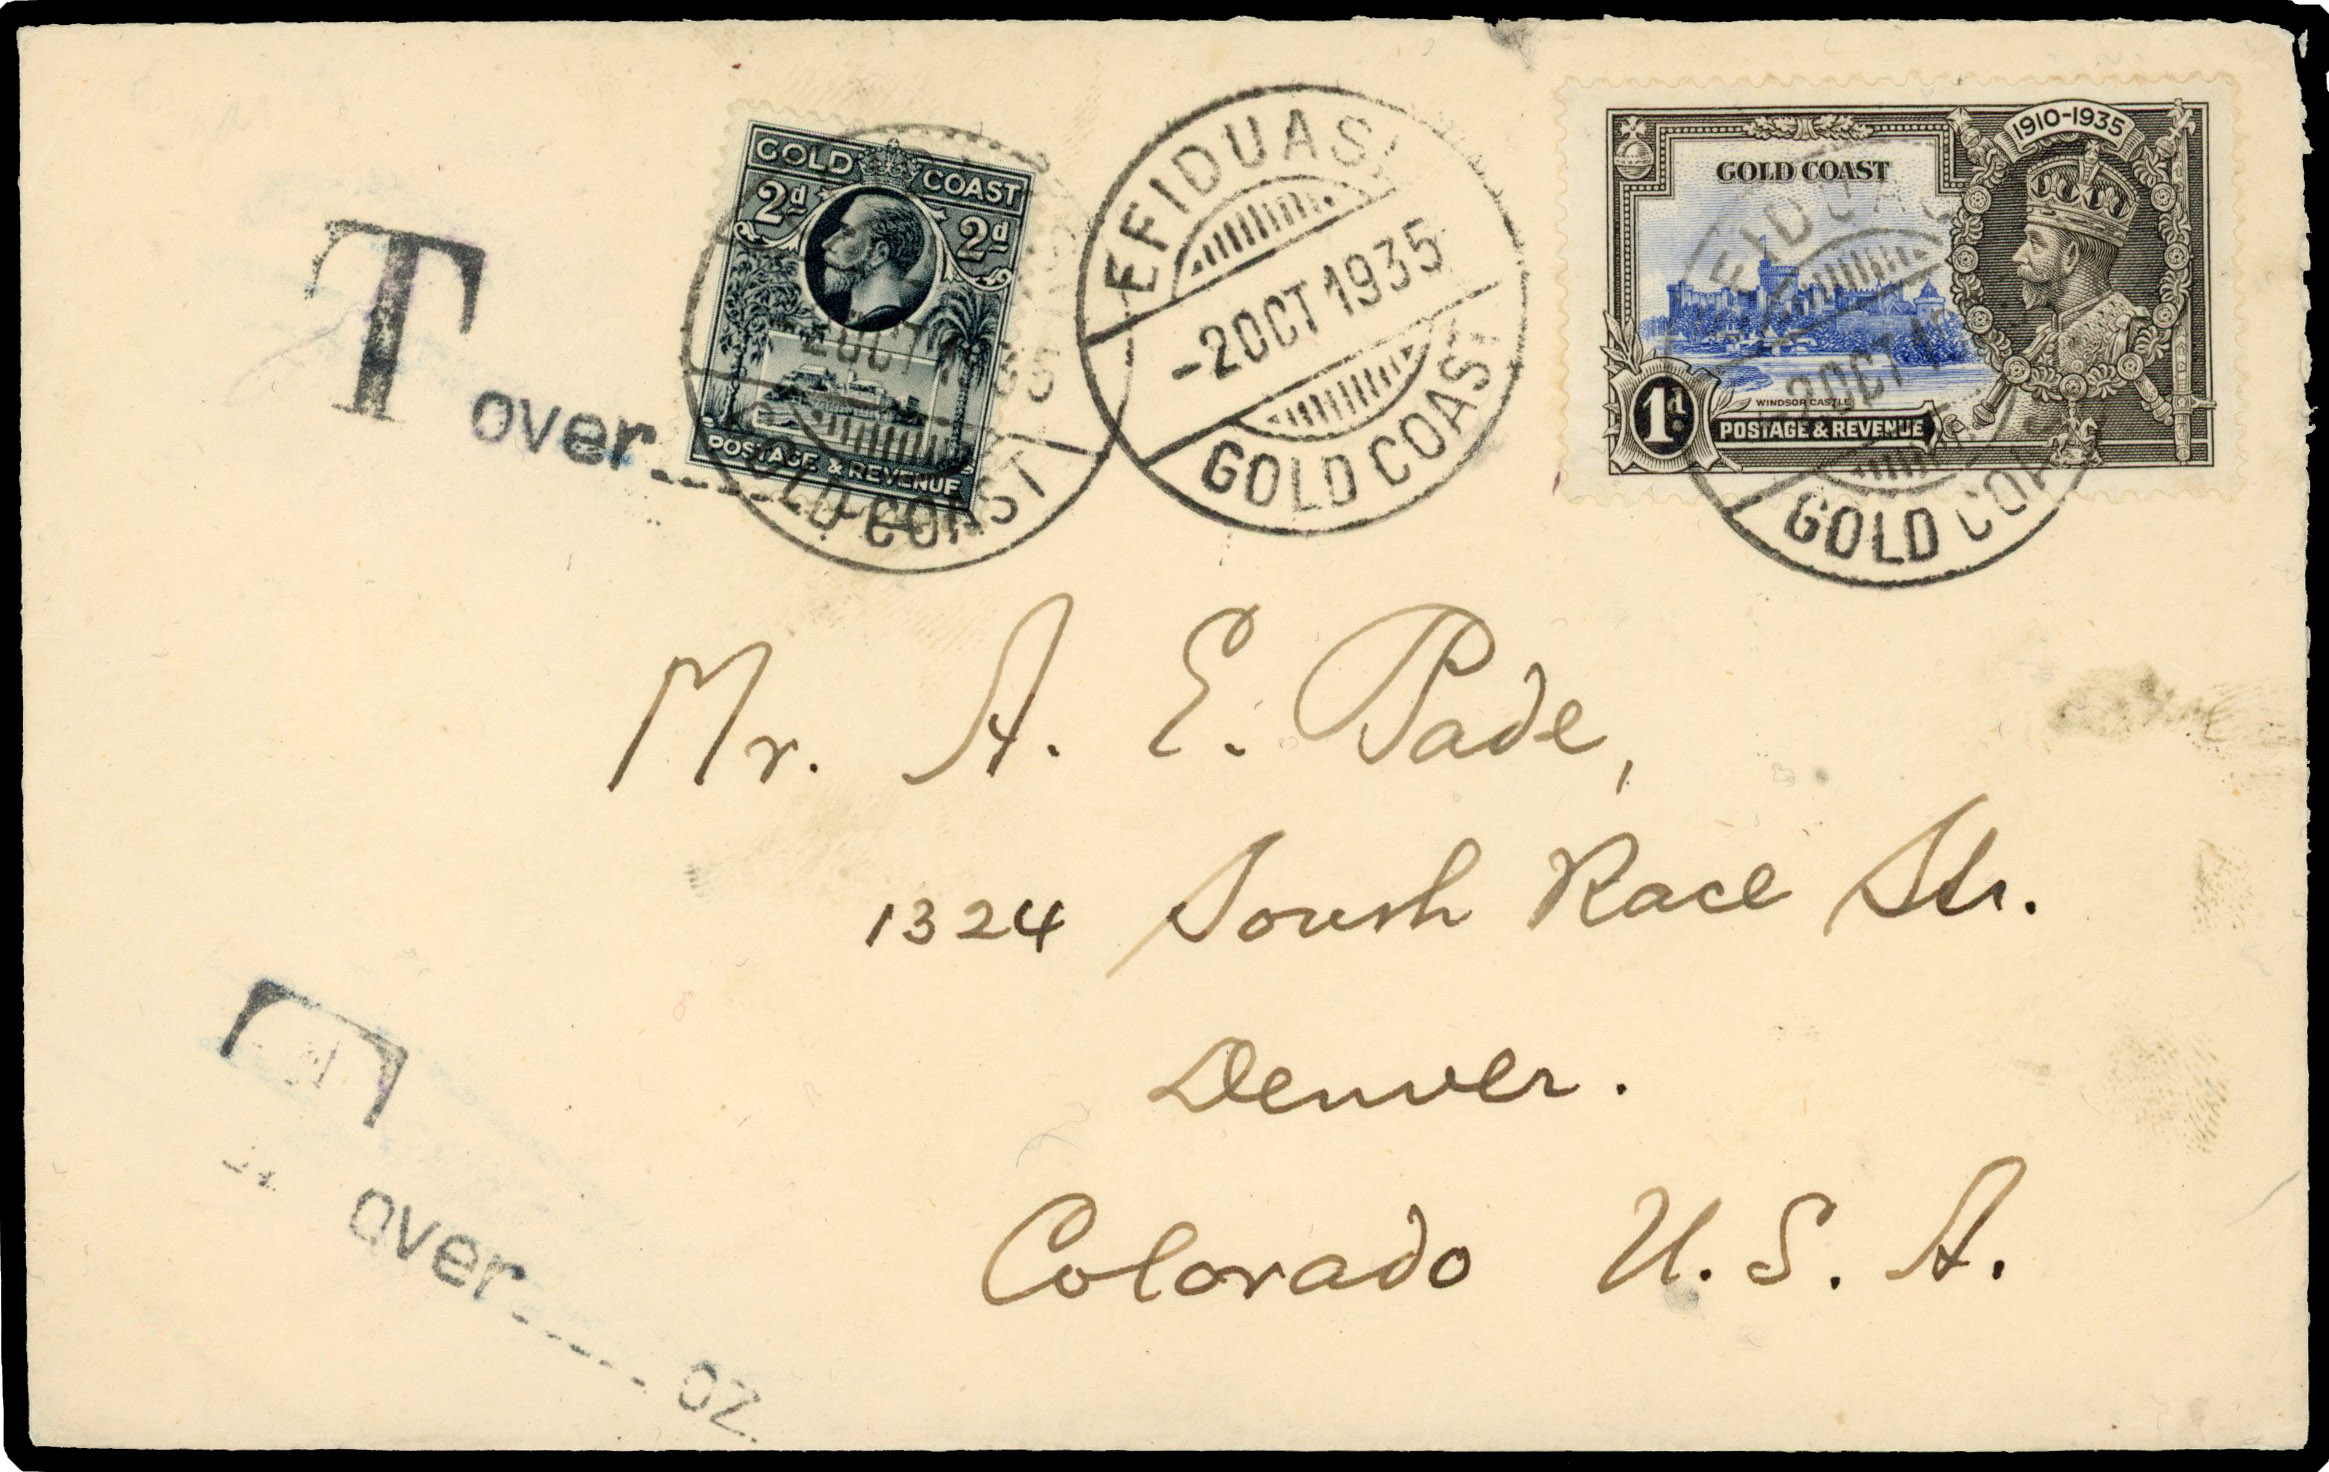 GOLD COAST
2d 2d
POSTAGE & REVENUE
EFIDUASI
-2 OCT 1935
GOLD COAST
1910-1935
GOLD COAST
WINDSOR CASTLE
1d.
POSTAGE & REVENUE
2 OCT
GOLD COAST
T
over
Mr. A. E. Pade,
1324 South Race Str.
Denver.
Colorado U.S.A.
over
OZ.